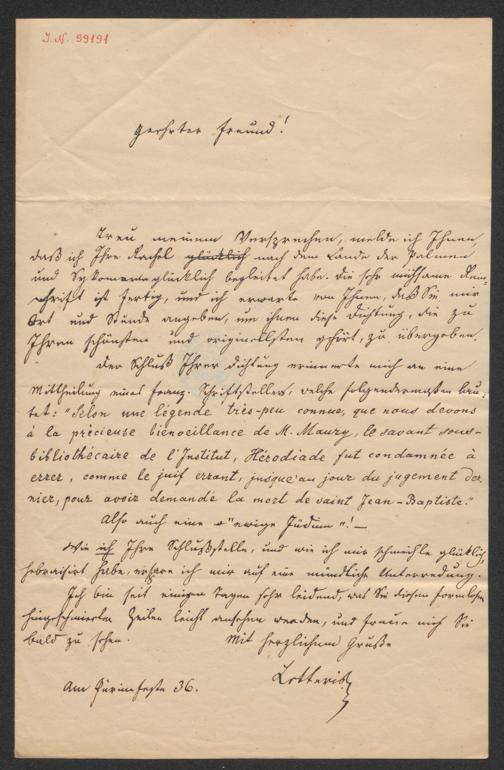 J. N. 99191
geehrter Freund!
Treu meinem Versprechen, melde ich Ihnen,
daß ich Ihre Rachel glücklich nach dem Lande der Palmen
und Sykomoren glücklich begleitet habe. die sehr mühsame Rein-
schrift ist fertig, und ich erwarte von Ihnen, daß Sie mir
Ort und Stunde angeben, um ihnen diese Dichtung, die zu
Ihren schönsten und originellsten gehört, zu übergeben.
Der Schluß Ihrer Dichtung erinnerte mich an eine
Mittheilung eines franz. Schriftstellers, welche folgendermaßen lau-
tet: "Selon une légende très-peu connue, que nous devons
à la précieuse bienveillance de M. Maury, le savant sous-
bibliothécaire de l'Institut, Hérodiade fut condamnée à
errer, comme le juif errant, jusqu'au jour du jugement der-
nier, pour avoir demandé la mort de saint Jean-Baptiste."
Also auch eine "ewige Jüdinn"! —
Wie ich Ihre Schlußstelle, und wie ich mir schmeichle glücklich,
hebraisirt habe, erspare ich mir auf eine mündliche Unterredung.
Ich bin seit einigen Tagen sehr leidend, was Sie diesen formlosen
hingeschmierten Zeilen leicht ansehen werden, und freue mich Sie
bald zu sehen. Mit herzlichem Gruße
Letteris
Am Purimfeste 36.